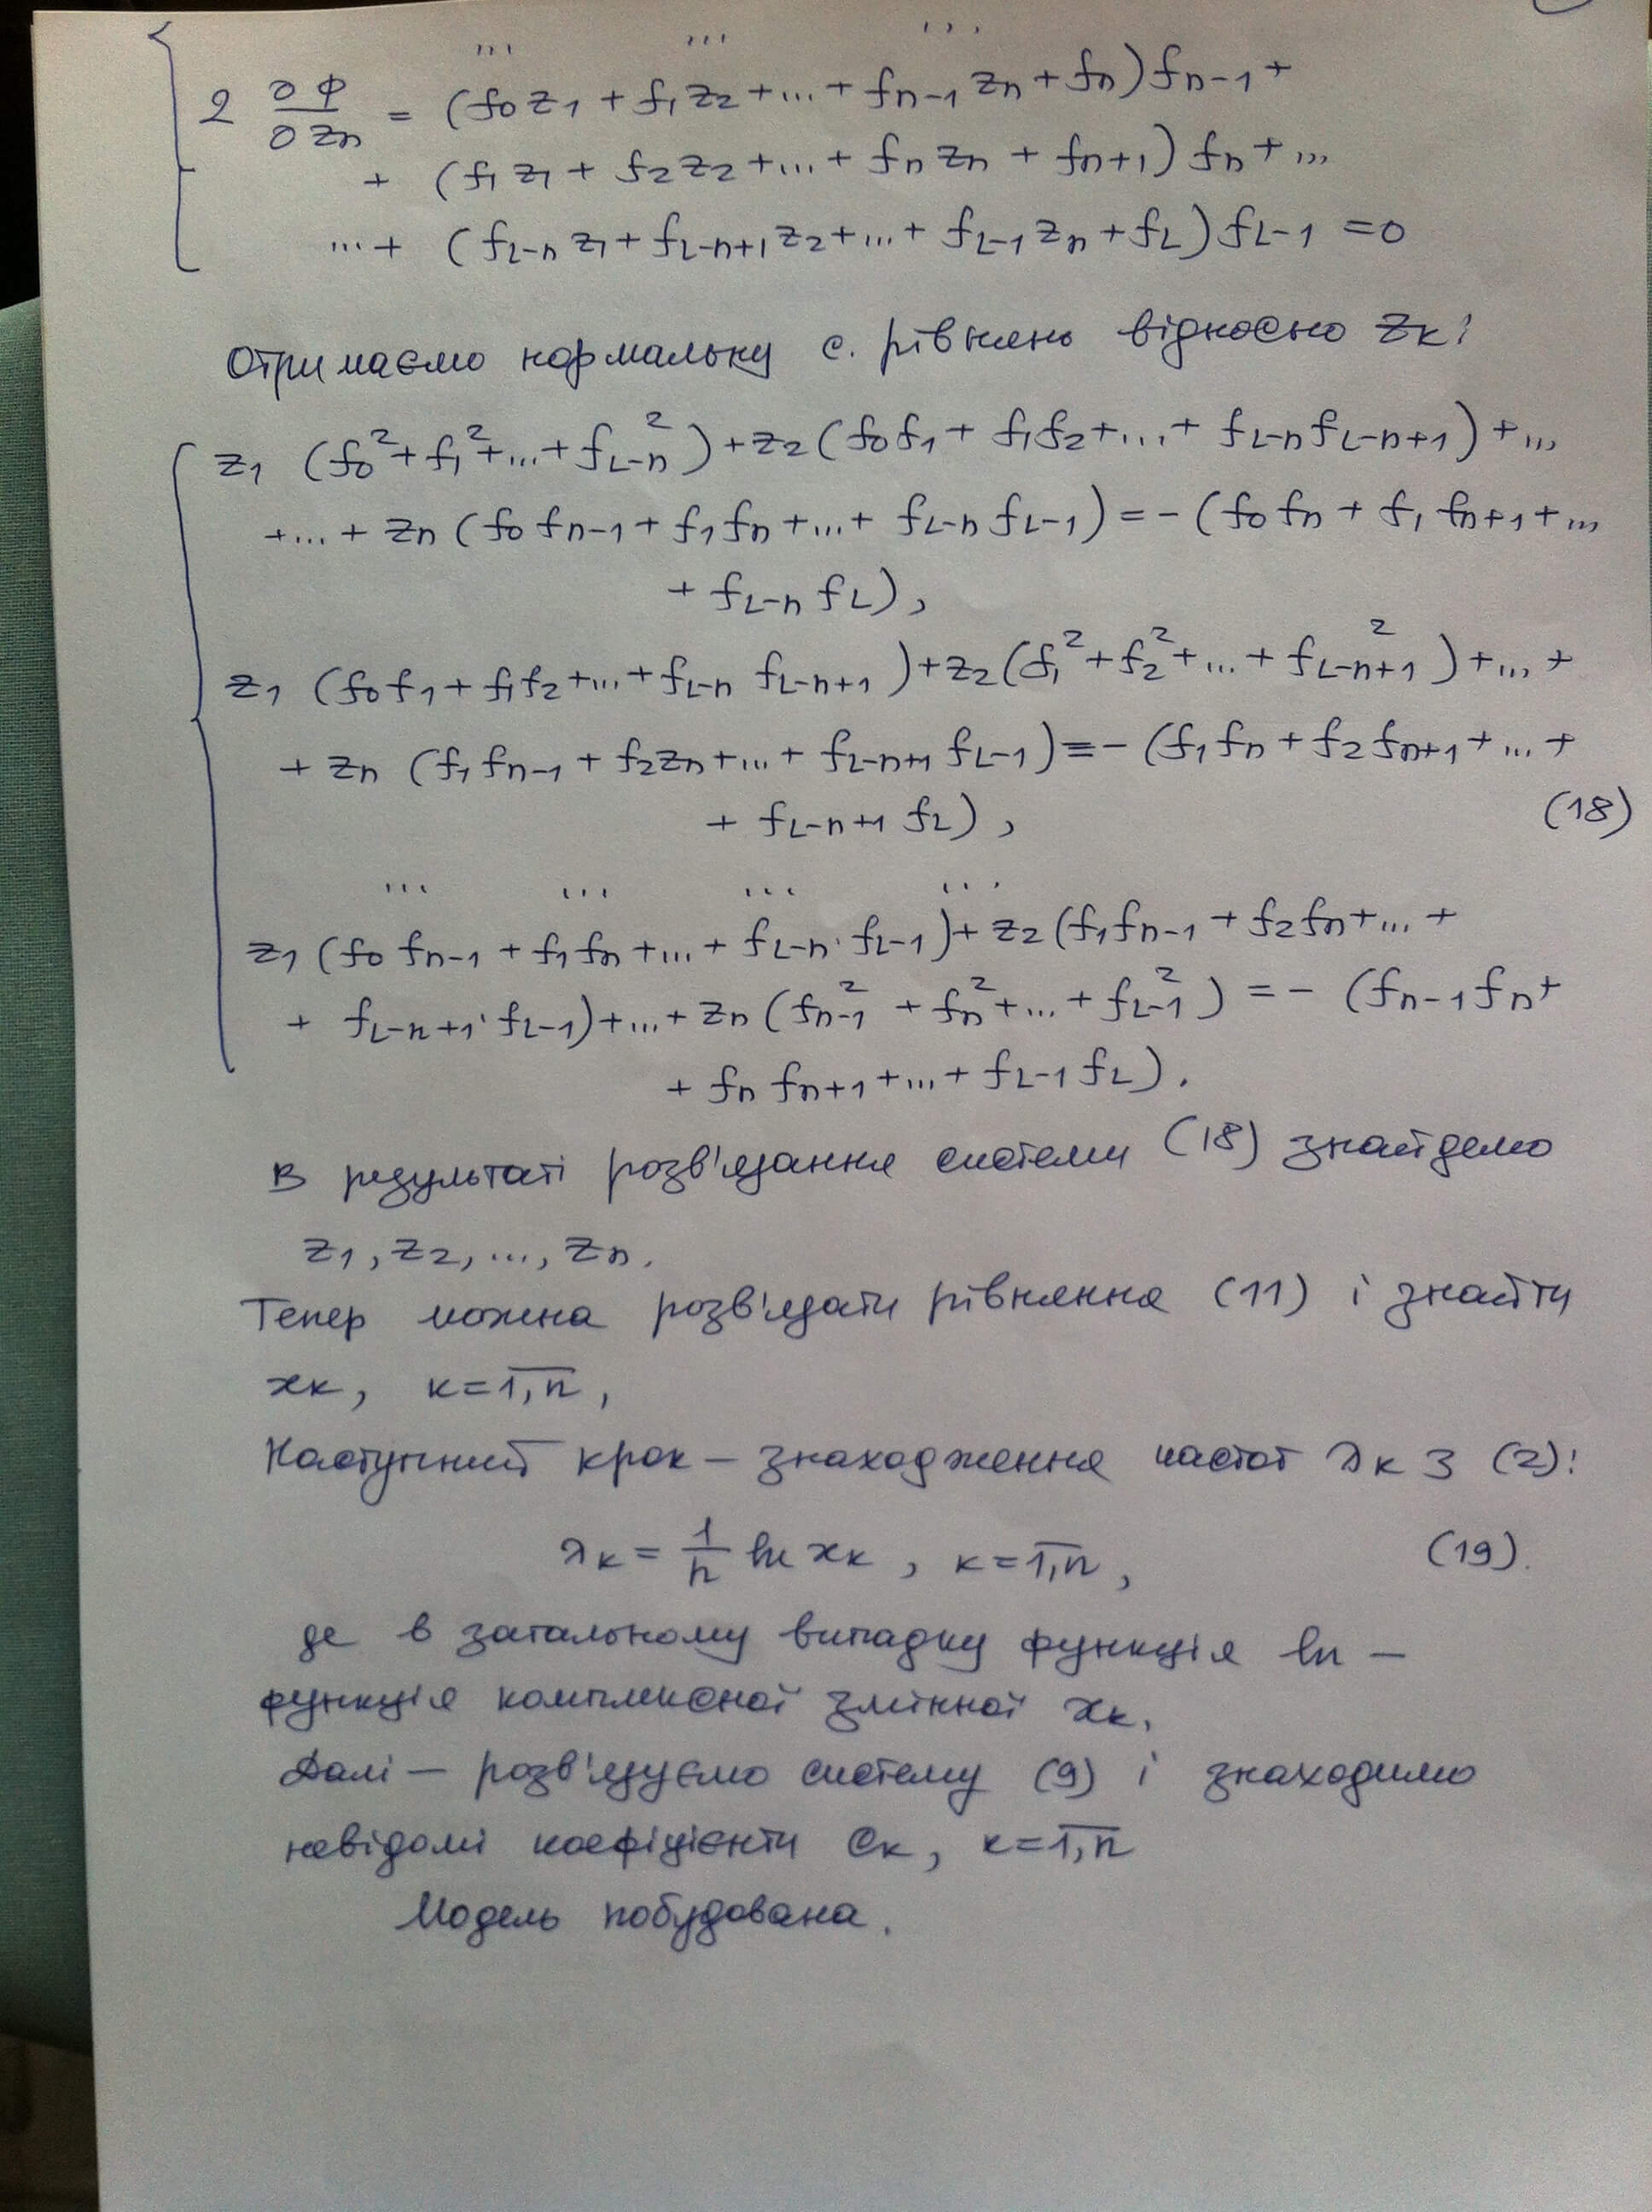 ... ... ...
2 ∂Φ/∂zn = (f0 z1 + f1 z2 + ... + fn-1 zn + fn) fn-1 +
+ (f1 z1 + f2 z2 + ... + fn zn + fn+1) fn + ...
... + (fL-n z1 + fL-n+1 z2 + ... + fL-1 zn + fL) fL-1 = 0
Отримаємо нормальну с. рівнянь відносно zк:
z1 (f0² + f1² + ... + fL-n²) + z2 (f0 f1 + f1 f2 + ... + fL-n fL-n+1) + ...
+ ... + zn (f0 fn-1 + f1 fn + ... + fL-n fL-1) = - (f0 fn + f1 fn+1 + ...
+ fL-n fL),
z1 (f0 f1 + f1 f2 + ... + fL-n fL-n+1) + z2 (f1² + f2² + ... + fL-n+1²) + ... +
+ zn (f1 fn-1 + f2 zn + ... + fL-n+1 fL-1) = - (f1 fn + f2 fn+1 + ... +
+ fL-n+1 fL), (18)
... ... ... ...
z1 (f0 fn-1 + f1 fn + ... + fL-n · fL-1) + z2 (f1 fn-1 + f2 fn + ... +
+ fL-n+1 · fL-1) + ... + zn (fn-1² + fn² + ... + fL-1²) = - (fn-1 fn +
+ fn fn+1 + ... + fL-1 fL).
В результаті розв'язання системи (18) знайдемо
z1, z2, ..., zn.
Тепер можна розв'язати рівняння (11) і знайти
xк, к = 1,n̅,
Наступний крок – знаходження частот λк з (2):
λк = 1/h ln xк, к = 1,n̅, (19).
де в загальному випадку функція ln –
функція комплексної змінної xк.
Далі – розв'язуємо систему (9) і знаходимо
невідомі коефіцієнти Cк, к = 1,n̅
Модель побудована.